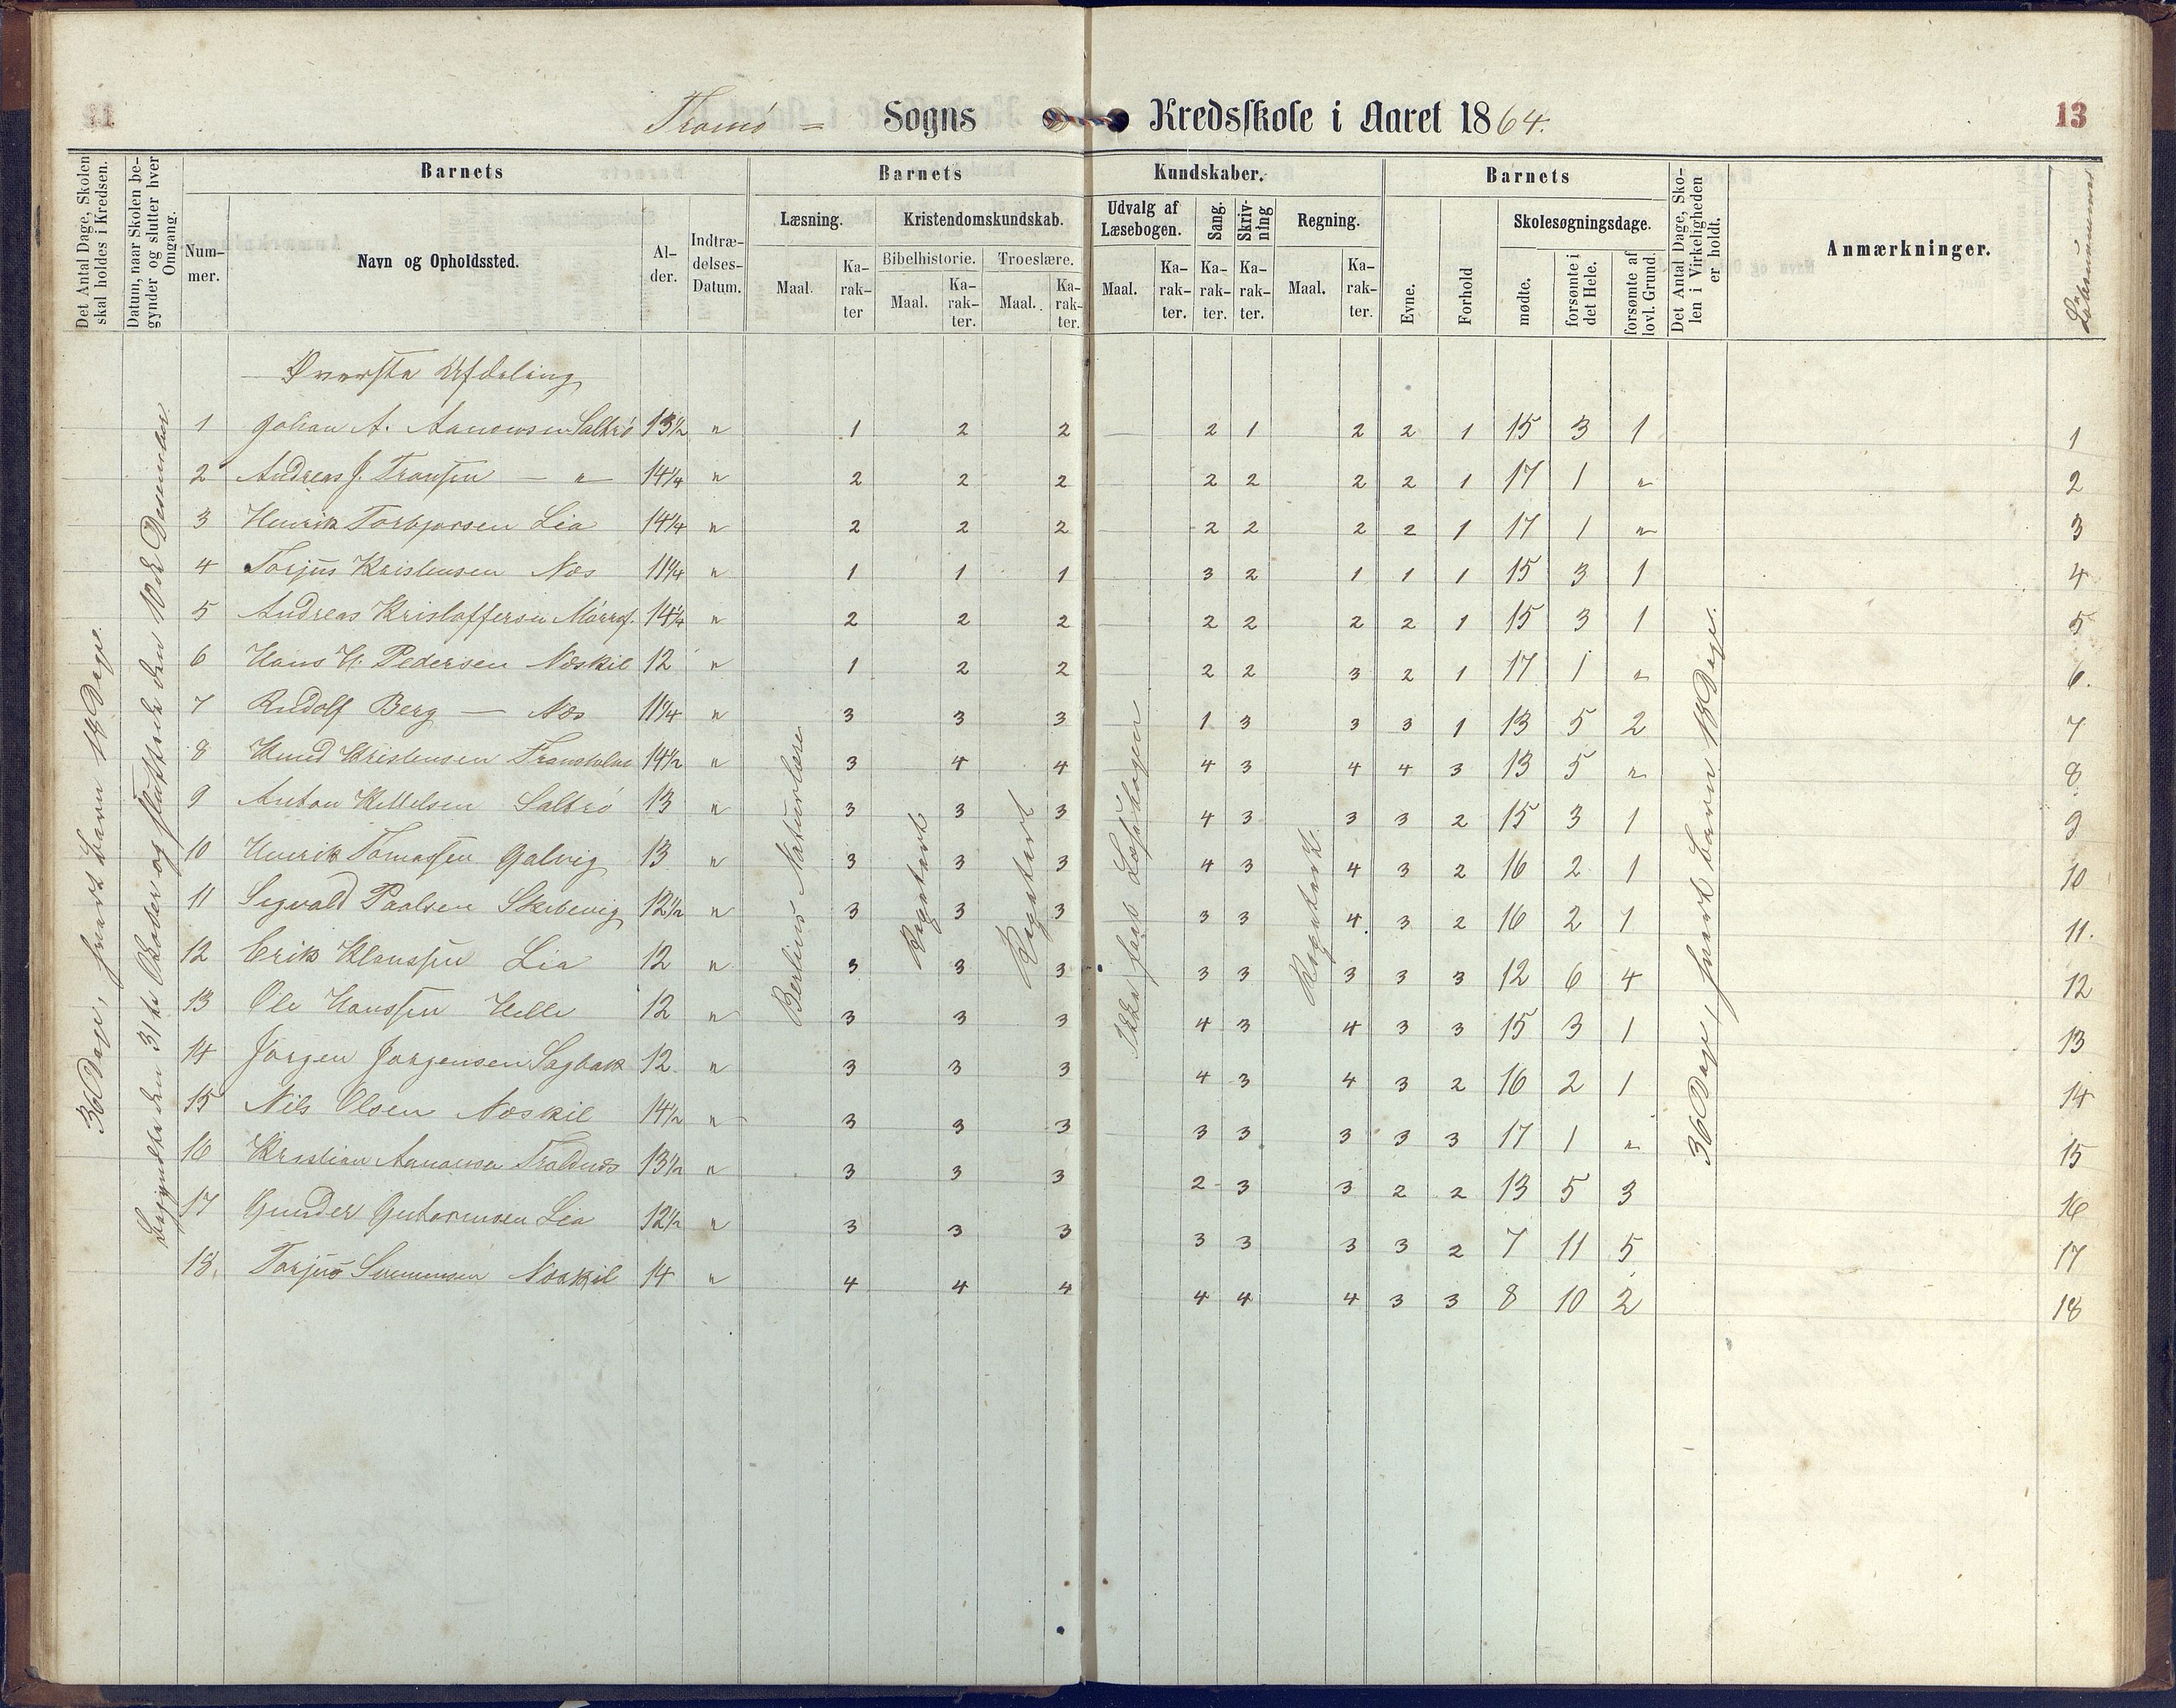 Tromø = Sogns Kredsskole i Aaret 1864. 13
Det Antal Dage, Skolen skal holdes i Kredsen.
Datum, naar Skolen begynder og slutter hver Omgang.
Barnets
Nummer.
Navn og Opholdssted.
Alder.
Indtrædelses-Datum.
Barnets Kundskaber.
Læsning. Maal. Karakter
Kristendomskundskab.
Bibelhistorie. Maal. Karakter.
Troeslære. Maal. Karakter.
Udvalg af Læsebogen. Maal. Karakter.
Sang. Karakter.
Skrivning Karakter.
Regning. Maal. Karakter.
Barnets
Evne.
Forhold
Skolesøgningsdage.
mødte.
forsømte i det Hele.
forsømte af lovl. Grund.
Det Antal Dage, Skolen i Virkeligheden er holdt.
Anmærkninger.
Løbenummer
Øverste Afdeling
1 Johan A. Aanonsen Saltrø 13½ " 1 2 2 2 1 2 2 1 15 3 1 1
2 Andreas J. Tronsen — " — 14¼ " 2 2 2 2 2 2 2 1 17 1 " 2
3 Henrik Torbjørsen Lia 14¼ " 2 2 2 2 2 2 2 1 17 1 " 3
4 Torjus Kristensen Næs 11¼ " 1 1 1 3 2 1 1 1 15 3 1 4
5 Andreas Kristoffersen 14¼ " 2 2 2 2 2 2 2 1 15 3 1 5
6 Hans H. Pedersen Næskil 12 " 1 2 2 2 2 3 2 1 17 1 " 6.
7 Rudolf Berg — Næs 11¼ " 3 3 3 1 3 3 3 1 13 5 2 7
8 Knud Kristensen 14½ " 3 4 4 4 3 4 4 3 13 5 " 8
9 Anton Kittelsen Saltrø 13 " 3 3 3 4 3 3 3 2 15 3 1 9
10 Henrik Tomassen Galvig 13 " 3 3 3 4 3 4 3 2 16 2 1 10
11 Sigvald Paalsen Skibevig 12½ " 3 3 3 3 3 4. 3 2 16 2 1 11.
12 Erik Klaussen Lia 12 " 3 3 3 3 3 3 3 3 12 6 4 12
13 Ole Hanssen Helle 12 " 3 3 3 4 3 4 3 3 15 3 1 13
14 Jørgen Jørgensen Sagbak 12 " 3 3 3 4 3 4 3 2 16 2 1 14
15 Nils Olsen Næskil 14½ " 3 3 3 3 3 3 3 3 17 1 " 15
16 Kristian Aanonsen Troldnæs 13½ " 3 3 3 2 3 3 2 2 13 5 3 16
17 Gunder Guttormsen Lia 12½ " 3 3 3 3 3 3 3 2 7 11 5 17
18. Torjus Næskil 14 " 4 4 4 4 4 4 3 3 8 10 2 18
36 Dage, hvert barn 18 Dage.
Begyndte den 31te October og sluttede den 10de December
Berlins Naturlære
Repetert
Repetert
Ikke faat Læsebogen
Repetert.
36 Dage, hvert barn 18 Dage.